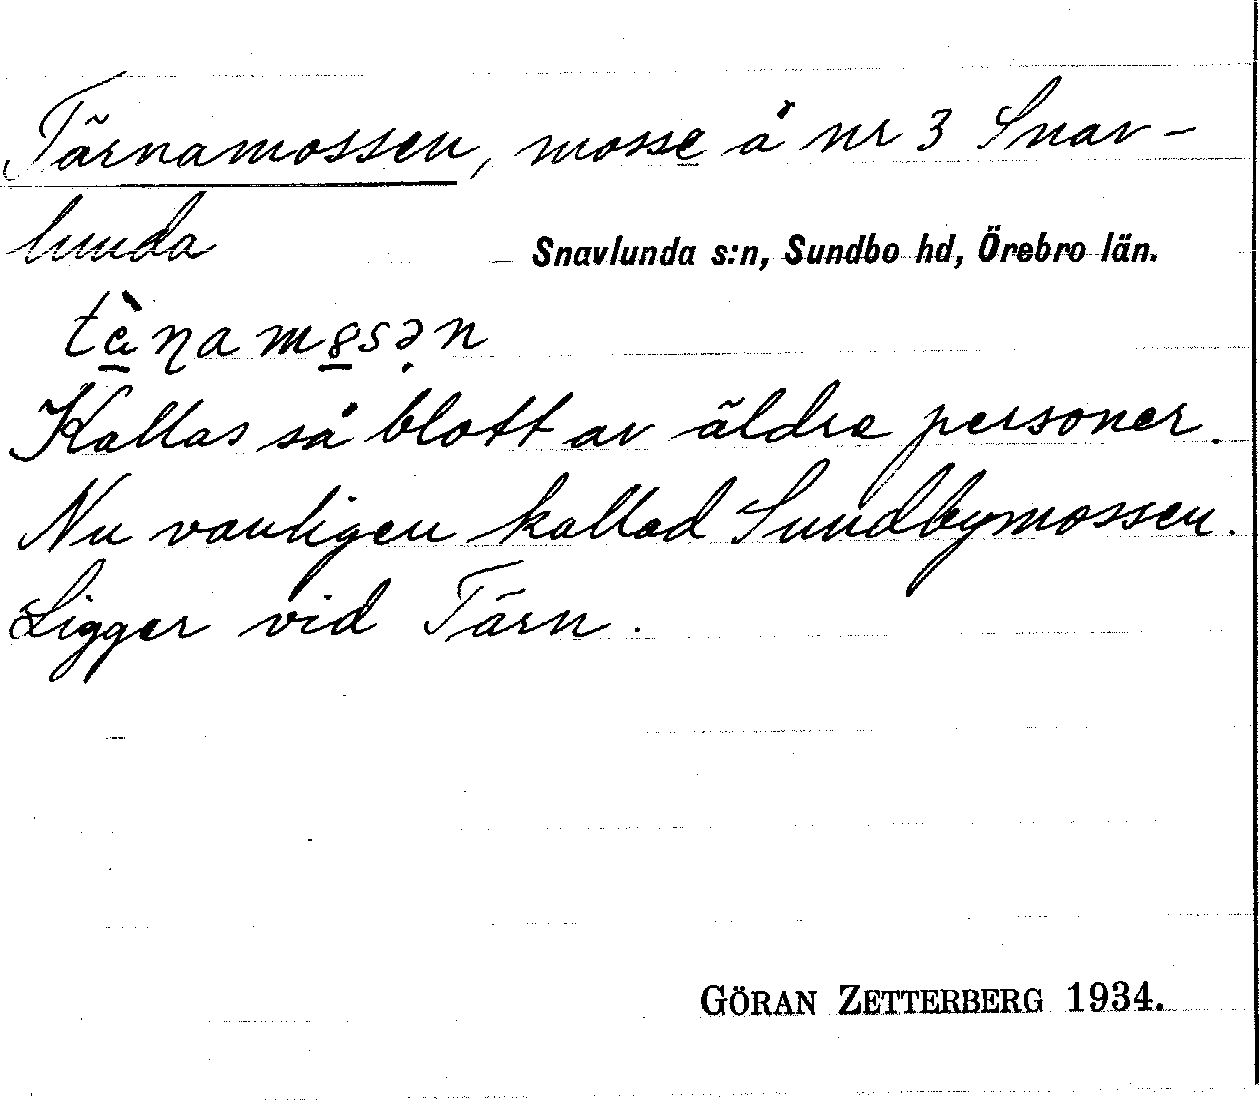 Tärnamossen, mosse å nr 3 Snav-
lunda
Snavlunda s:n, Sundbo hd, Örebro län.
Kallas så blott av äldre personer.
Nu vanligen kallad Sundbymossen.
Ligger vid Tärn.
GÖRAN ZETTERBERG 1934.